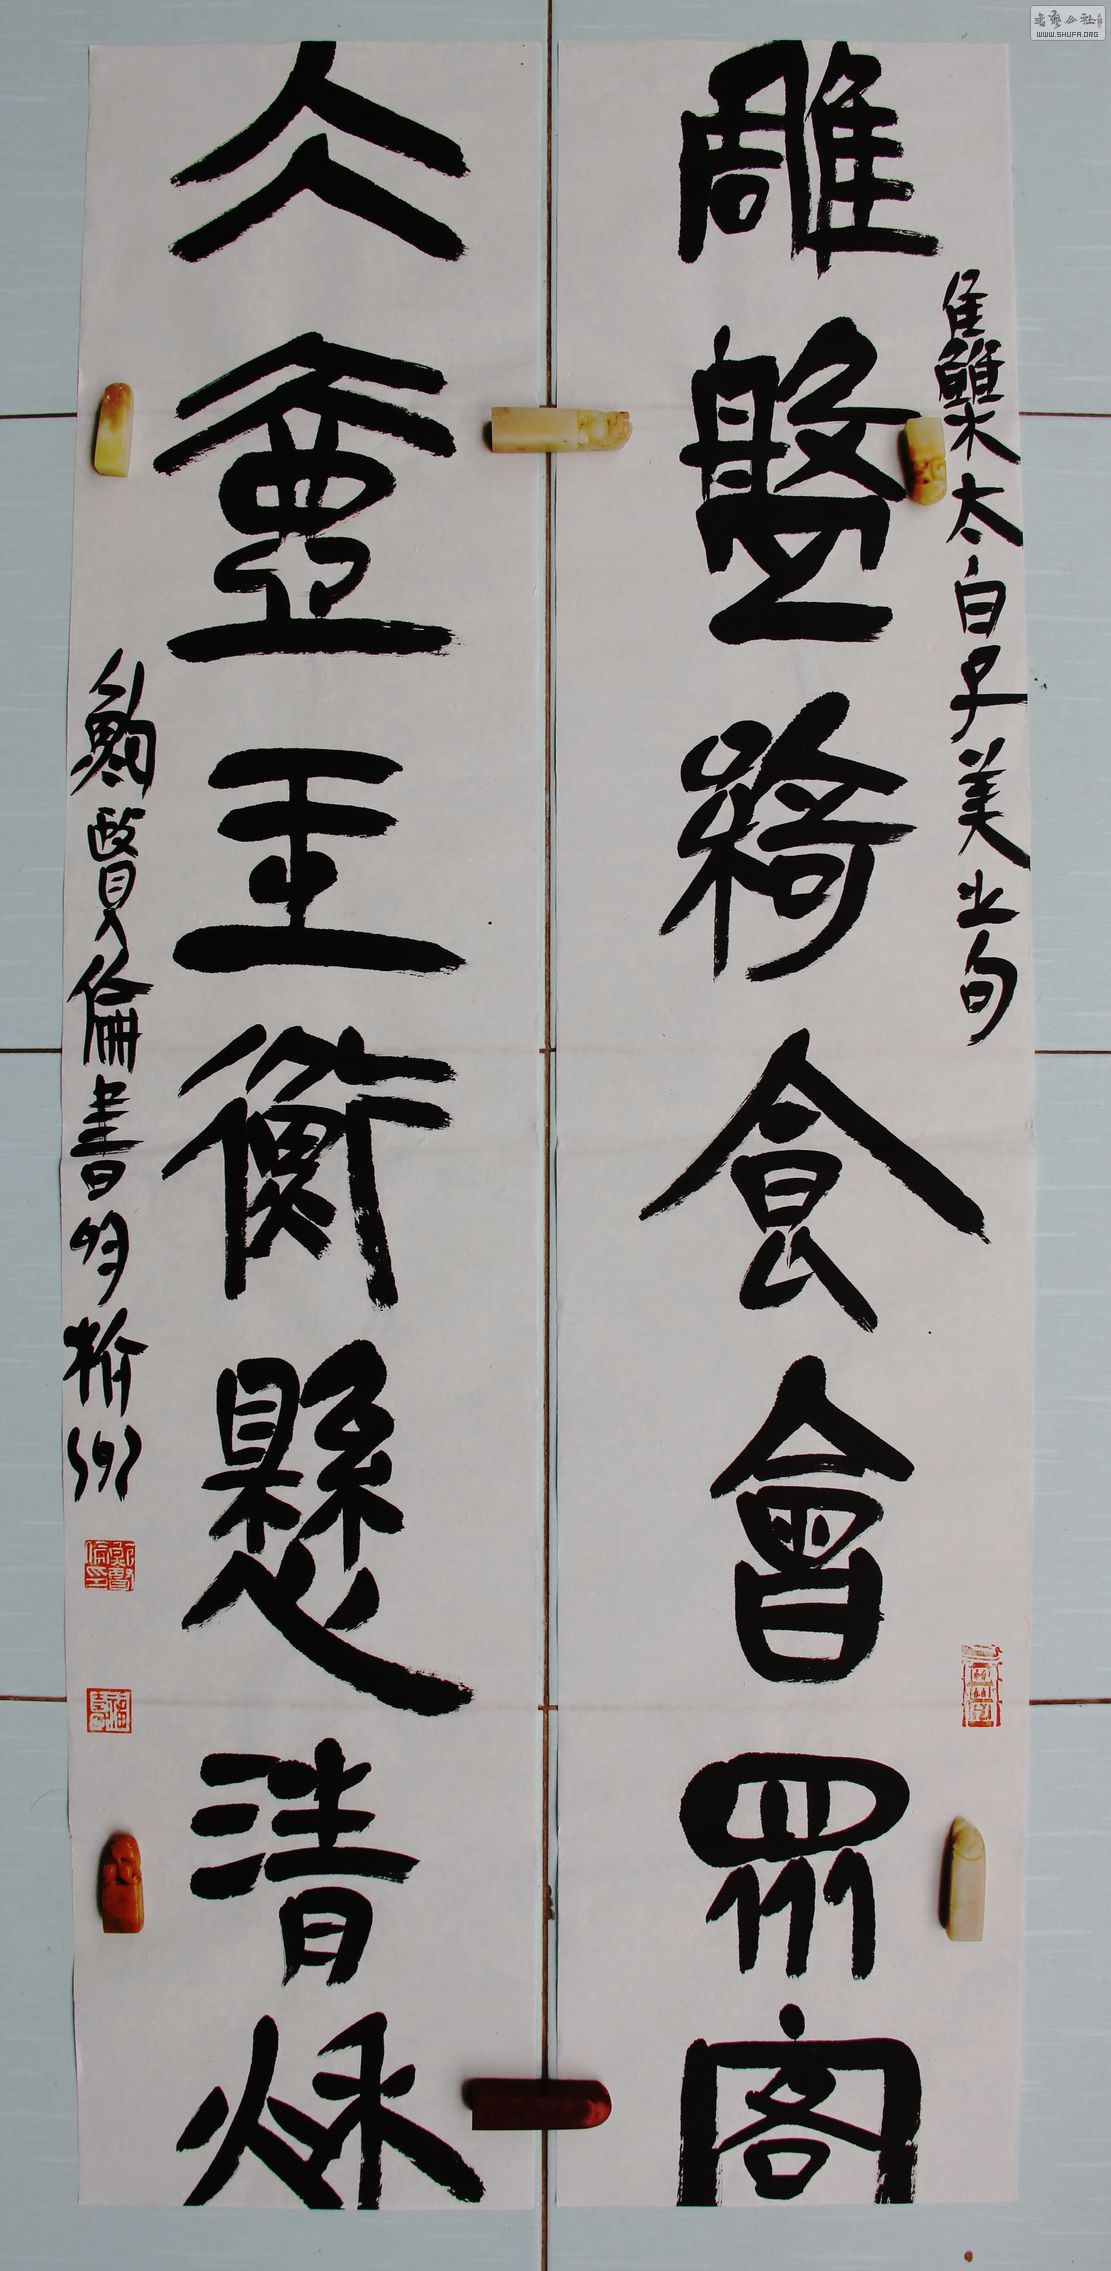 書藝公社
WWW.SHUFA.ORG
雕盤綺食會眾客
集太白子美之句
仌壺玉衡懸清秋
鮑賢倫書於杭州